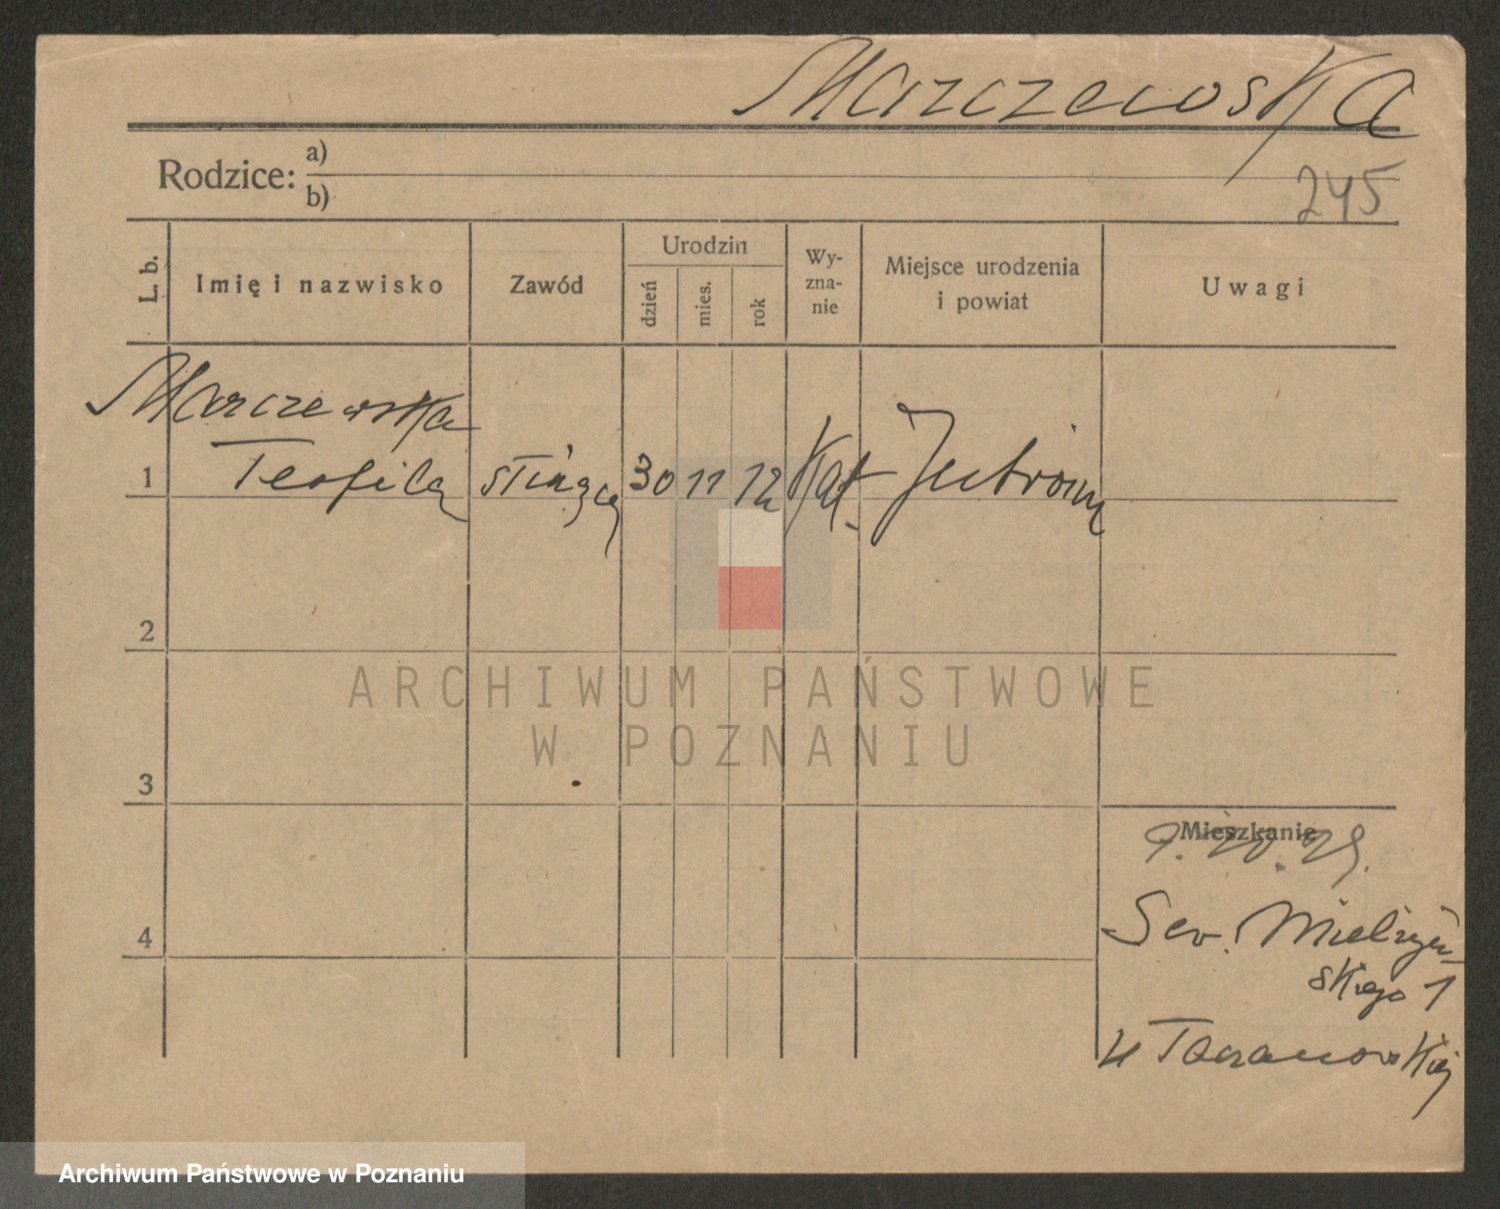 Marczewska
Rodzice: a)
b)
245
L. b.
Imię i nazwisko
Zawód
Urodzin
dzień
mies.
rok
Wy-
zna-
nie
Miejsce urodzenia
i powiat
Uwagi
Marczewska
1 Teofila służąca 30 11 12 Kat.
2
3
4
Mieszkanie
Sew. Mielżyń-
skiego 1
u Taczanowskiej
ARCHIWUM PAŃSTWOWE
W POZNANIU
Archiwum Państwowe w Poznaniu